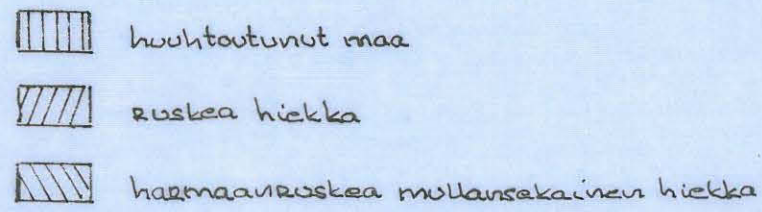 huuhtoutunut maa
ruskea hiekka
harmaanruskea mullansekainen hiekka